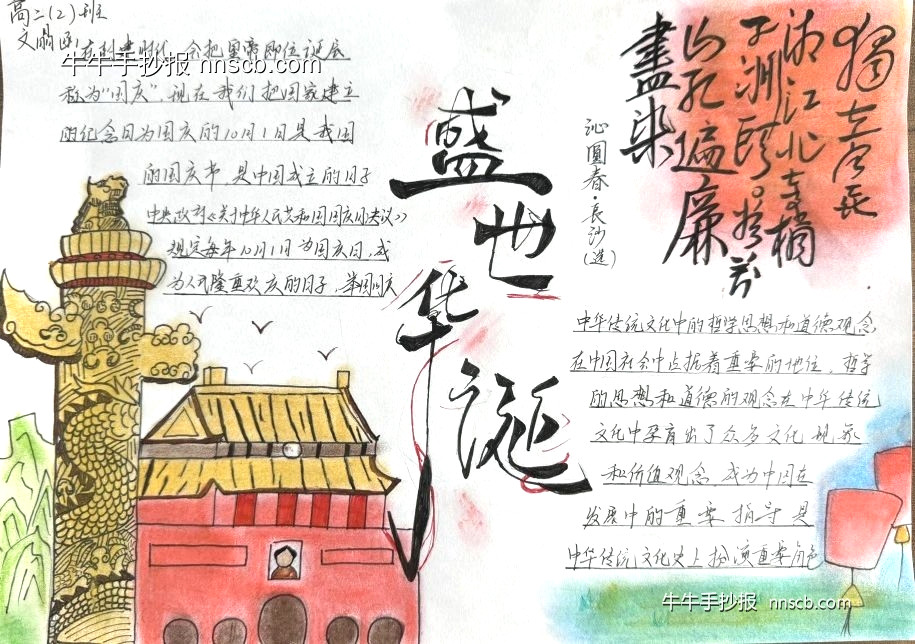 高二(2)班
牛牛手抄报 nnscb.com
称为"国庆",现在我们把国家建立
的纪念日为国庆的10月1日是我国
的国庆节,是中国成立的日子
中央政府《关于中华人民共和国国庆日决议》
规定每年10月1日为国庆日,成
为人民隆重欢庆的日子,举国同庆
盛世华诞
獨立寒
湘江北去橘
子洲頭。看萬
山紅遍
盡染
沁圓春·長沙(选)
中华传统文化中的哲学思想和道德观念
在中国社会中占据着重要的地位。哲学
的思想和道德的观念在中华传统
文化中孕育出了众多文化现象
和价值观念,成为中国在
发展中的重要指导是
中华传统文化史上扮演重要角色
牛牛手抄报 nnscb.com